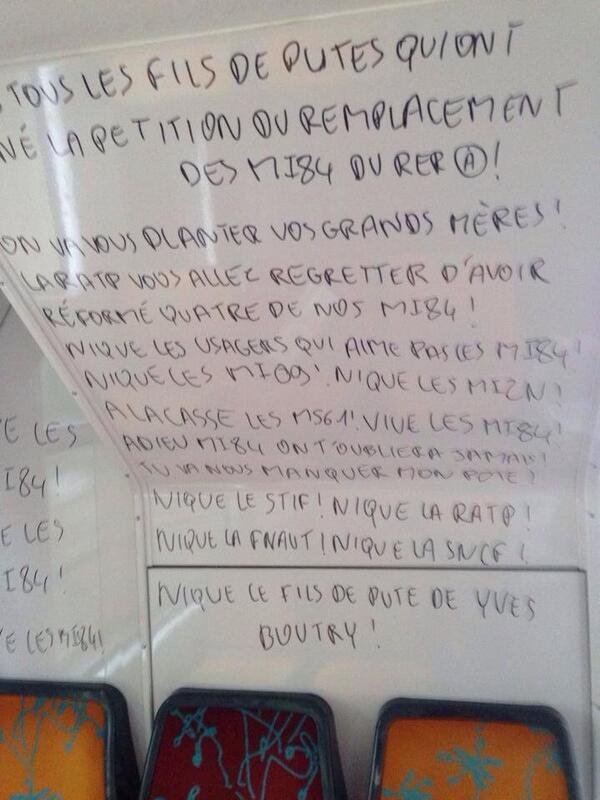 TOUS LES FILS DE PUTES QUI ONT
NÉ LA PETITION DU REMPLACEMENT
DES MI84 DU RER A !
ON VA VOUS PLANTER VOS GRANDS MÈRES !
LA RATP VOUS ALLEZ REGRETTER D'AVOIR
RÉFORMÉ QUATRE DE NOS MI84 !
NIQUE LES USAGERS QUI AIME PAS LES MI84 !
NIQUE LES MI09 ! NIQUE LES MI2N !
A LA CASSE LES MS61 ! VIVE LES MI84 !
ADIEU MI84 ON T'OUBLIERA JAMAIS !
TU VA NOUS MANQUER MON POTE !
NIQUE LE STIF ! NIQUE LA RATP !
NIQUE LA FNAUT ! NIQUE LA SNCF !
NIQUE LE FILS DE PUTE DE YVES
BOUTRY !
E LES
I84 !
E LES
I84 !
E LES MI84 !